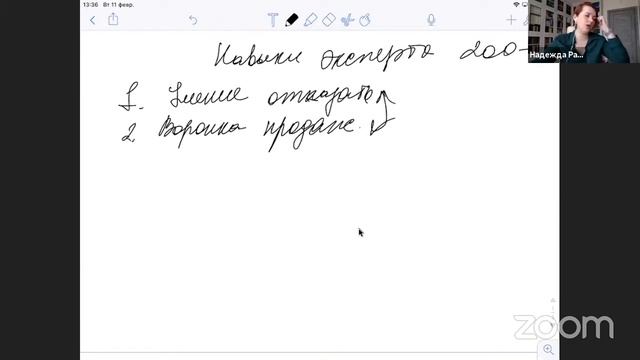 13:36 Вт 11 февр.
Надежда Ра...
Навыки эксперта 200-
1. Умение отказать
2. Воронка продаж.
zoom